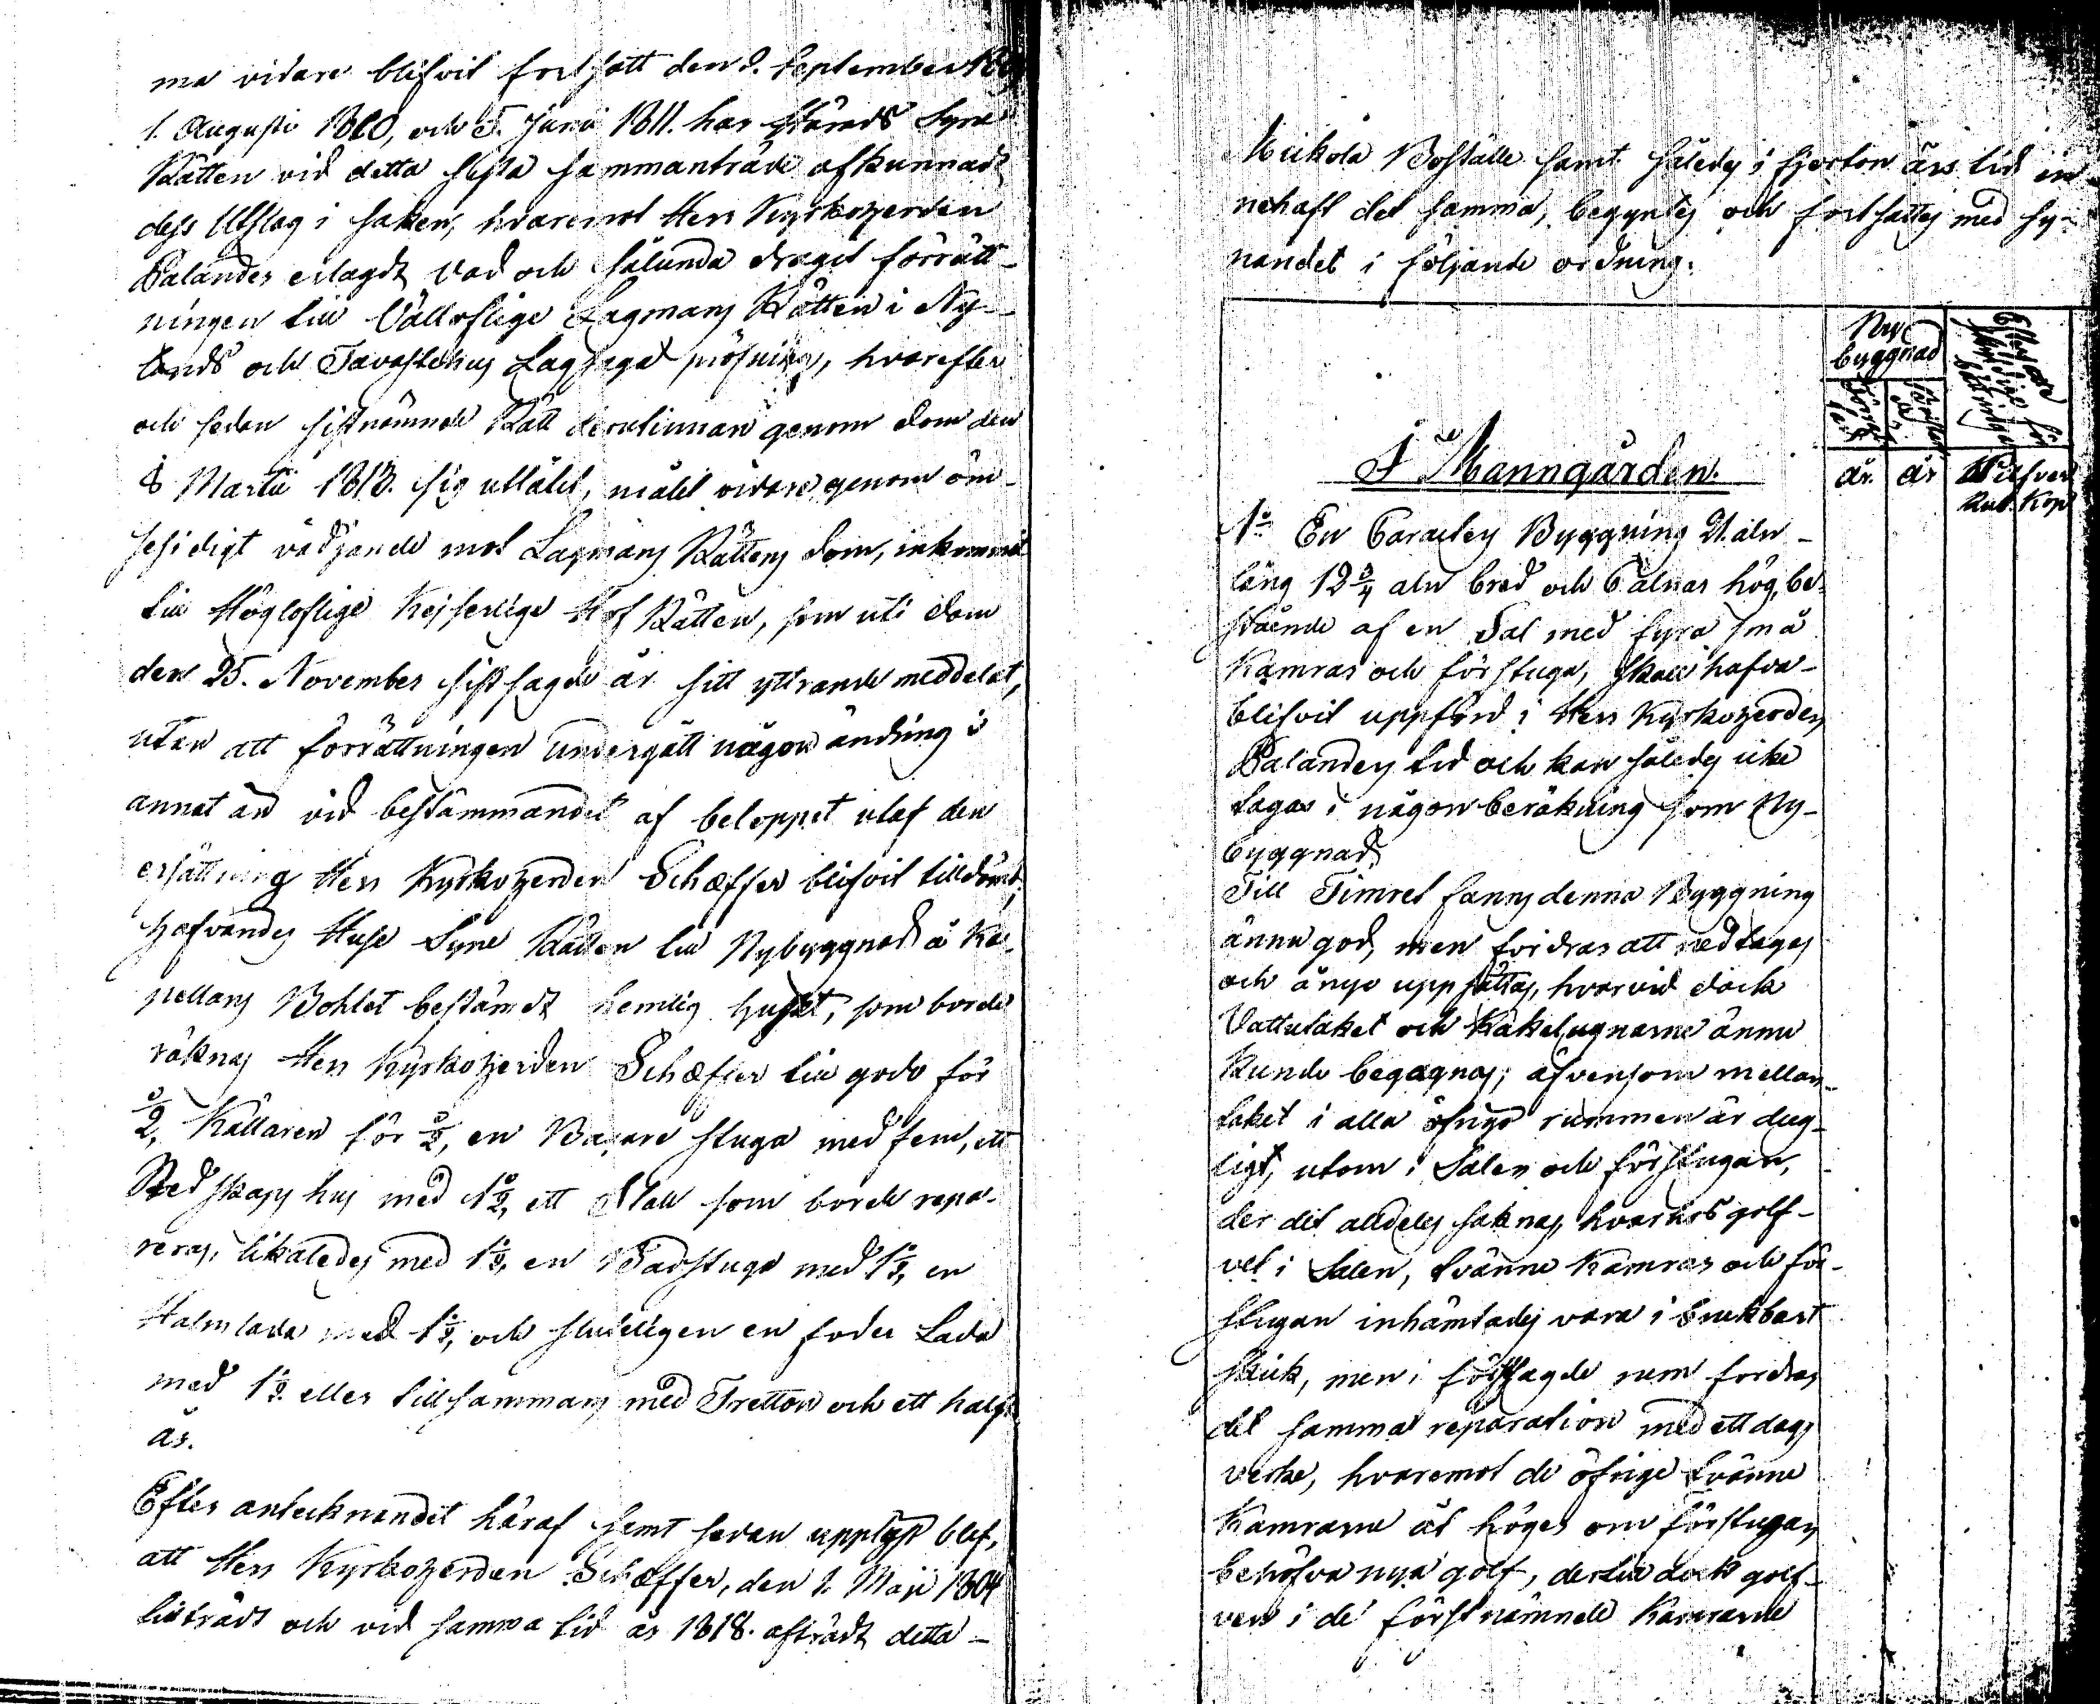 ma vidare blifvit fortsatt den 2. September
1. Augusti 1810, och 5. Juni 1811. har Härads Syne
Rätten vid detta sista sammanträde afkunnadt
dess Utslag i saken, hvaremot Herr Kyrkoherden
Palander erlagdt vad och sålunda dragit förrätt-
ningen till Välloflige Lagmans Rätten i Ny-
lands och Tavastehus Lagsaga pröfning, hvarefter
och sedan sistnämnde Rätt deröfinnan genom dom den
8 Martii 1813. sig utlåtit, målet vidare genom öm-
sesidigt vädjande mot Lagmans Rättens dom, inkommit
till Högloflige Kejserlige Hof Rätten, som uti dom
den 25. November sistsagde år sitt yttrande meddelat,
utan att förrättningen undergått någon ändring i
annat än vid bestämmandet af beloppet utaf den
ersättning Herr Kyrkoherden Schæffer blifvit tilldömt,
hafvandes Huse Syne Rätten till Nybyggnad å Ka-
pellans Bohlet bestämdt hemlig huset, som borde
räknas Herr Kyrkoherden Schæffer till godo för
1/2, Källaren för 1/2, en Bagare stuga med fem, ett
Redskaps hus med 1 1/2, ett Stall som borde repa-
reras, likaledes med 1 1/2, en Badstuga med 1 1/2, en
Halmlada med 1 1/2, och sluteligen en foder Lada
med 1 1/2 eller tillsammans med Tretton och ett half
år.
Efter antecknandet häraf samt sedan upplyst blef,
att Herr Kyrkoherden Schæffer, den 1. Maji 1804
tillträdt och vid samma tid år 1818. afträdt detta
Mickola Boställe samt således i fjorton års tid in-
nehaft det samma, begyntes och fortsattes med sy-
nandet i följande ordning.
Ny
byggnad
år. år Silfver
Rub. Kop
I Manngården.
1o En Caracters Byggning 21. aln
lång 12 3/4 aln bred och 6 alnar hög, be-
stående af en Sal med fyra små
Kamrar och förstuga, skall hafva
blifvit uppförd i Herr Kyrkoherden
Palanders tid och kan således icke
tagas i någon beräkning som Ny-
byggnad.
Till Timret fanns denna Byggning
ännu god, men fordras att nedtagas
och ånyo uppsättas, hvarvid dock
Vattutaket och Kakelugnarne ännu
kunde begagnas; äfvensom mellan-
taket i alla öfrige rummen är dug-
ligt, utom i Salen och förstugan,
der det alldeles saknas, hvarhos golf-
vet i Salen, tvänne Kamrar och för-
stugan inhämtades vara i brukbart
skick, men i förstsagde rum fordras
det samma reparation med ett dags
verke, hvaremot de öfrige tvänne
Kamrarne åt höger om förstugan
behöfva nya golf, dertill dock golf-
ven i de förstnämnde Kamrarne